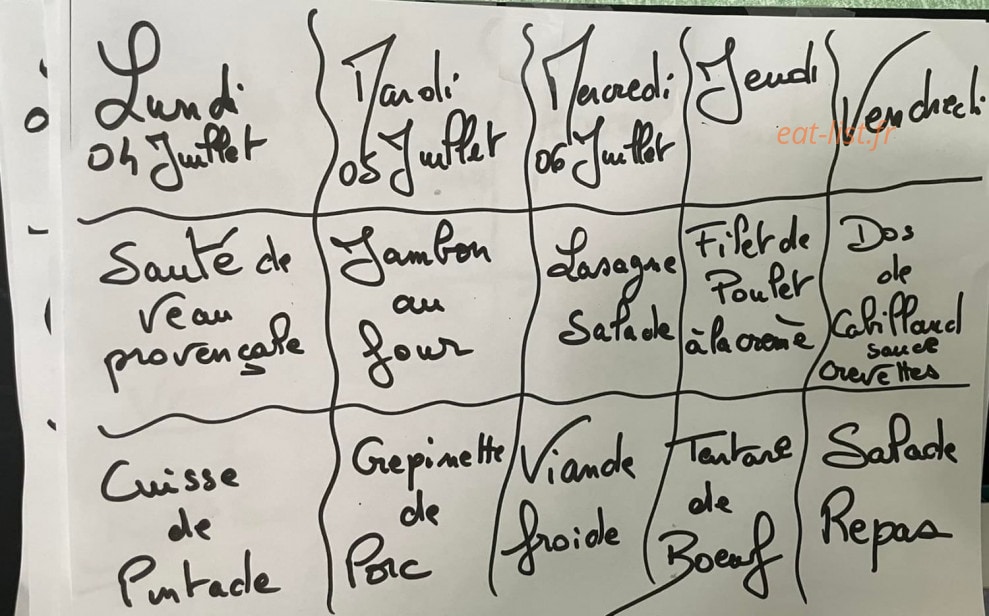 Lundi
04 Juillet
Mardi
05 Juillet
Mercredi
06 Juillet
Jeudi
Vendredi
eat-list.fr
Sauté de
Veau
provençale
Jambon
au
four
Lasagne
Salade
Filet de
Poulet
à la crème
Dos
de
Cabillaud
sauce
Crevettes
Cuisse
de
Pintade
Crepinette
de
Porc
Viande
froide
Tartare
de
Boeuf
Salade
Repas